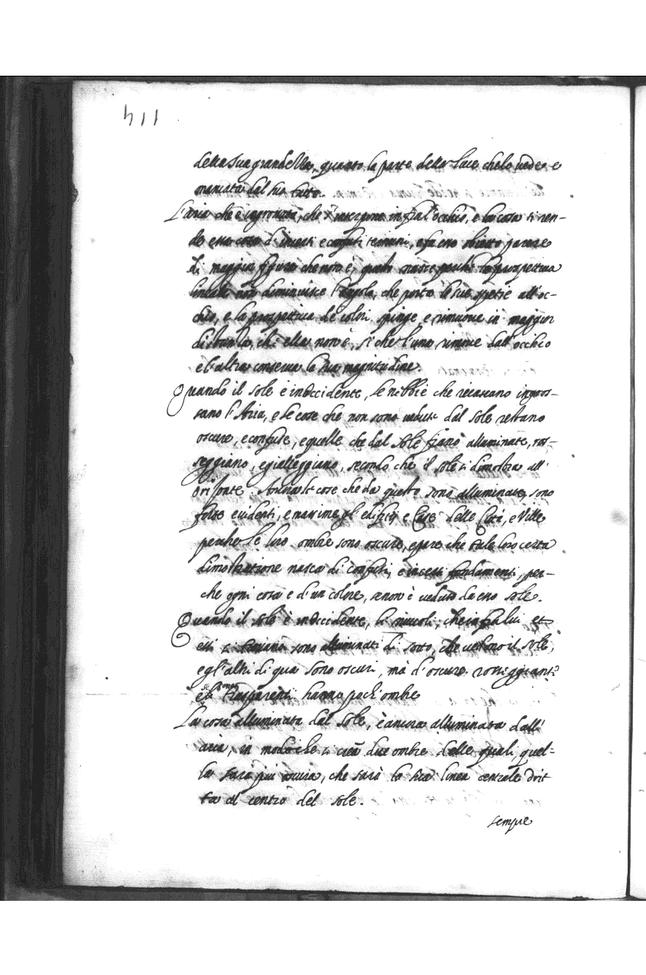 114
della sua grandezza, quanto la parte della luce che lo vede e
mancata dal suo tutto.
L'aria che è ingrossata, che s'interpone infra l'occhio, e la cosa ti ren-
de essa cosa d'incerti e confusi termini, e fa esso obietto parere
di maggior figura che non è, questo nasce perché la prospettiva
lineale non diminuisce l'angolo, che porta le sue spetie all'oc-
chio, e la prospettiva de' colori spinge e rimuove in maggior
distantia, che ella non è, si che l'una rimuove dall'occhio
e l'altra conserva la sua magnitudine.
Quando il sole è in occidente, le nebbie che recascano ingros-
sano l'Aria, e le cose che non sono vedute dal sole restano
oscure, e confuse, e quelle che dal sole fiano alluminate, ros-
seggiano, e gialleggiano, secondo che il sole si dimostra all'
orizonte. Ancora le cose che da questo sono alluminate, sono
forte evidenti, e massime gl' edifitii e Case delle Città, e Ville
perche le loro ombre sono oscure, e pare che tale loro certa
dimostratione nasca di confusi, e incerti fondamenti, per-
che ogni cosa è d'un colore, se non è veduta da esso sole.
Quando il sole è in occidente, li nuvoli, che infra lui et
te si trovano sono alluminati di sotto, che vedono il sole,
e gl'altri di qua sono oscuri, mà d'oscuro rosseggianti
e li trasparenti hanno poch'ombre
La cosa alluminata dal sole, è ancora alluminata dall'
aria, in modo che si crea due ombre delle quali quel-
la sarà più oscura, che sarà la sua linea centrale drit
ta al centro del sole.
sempre